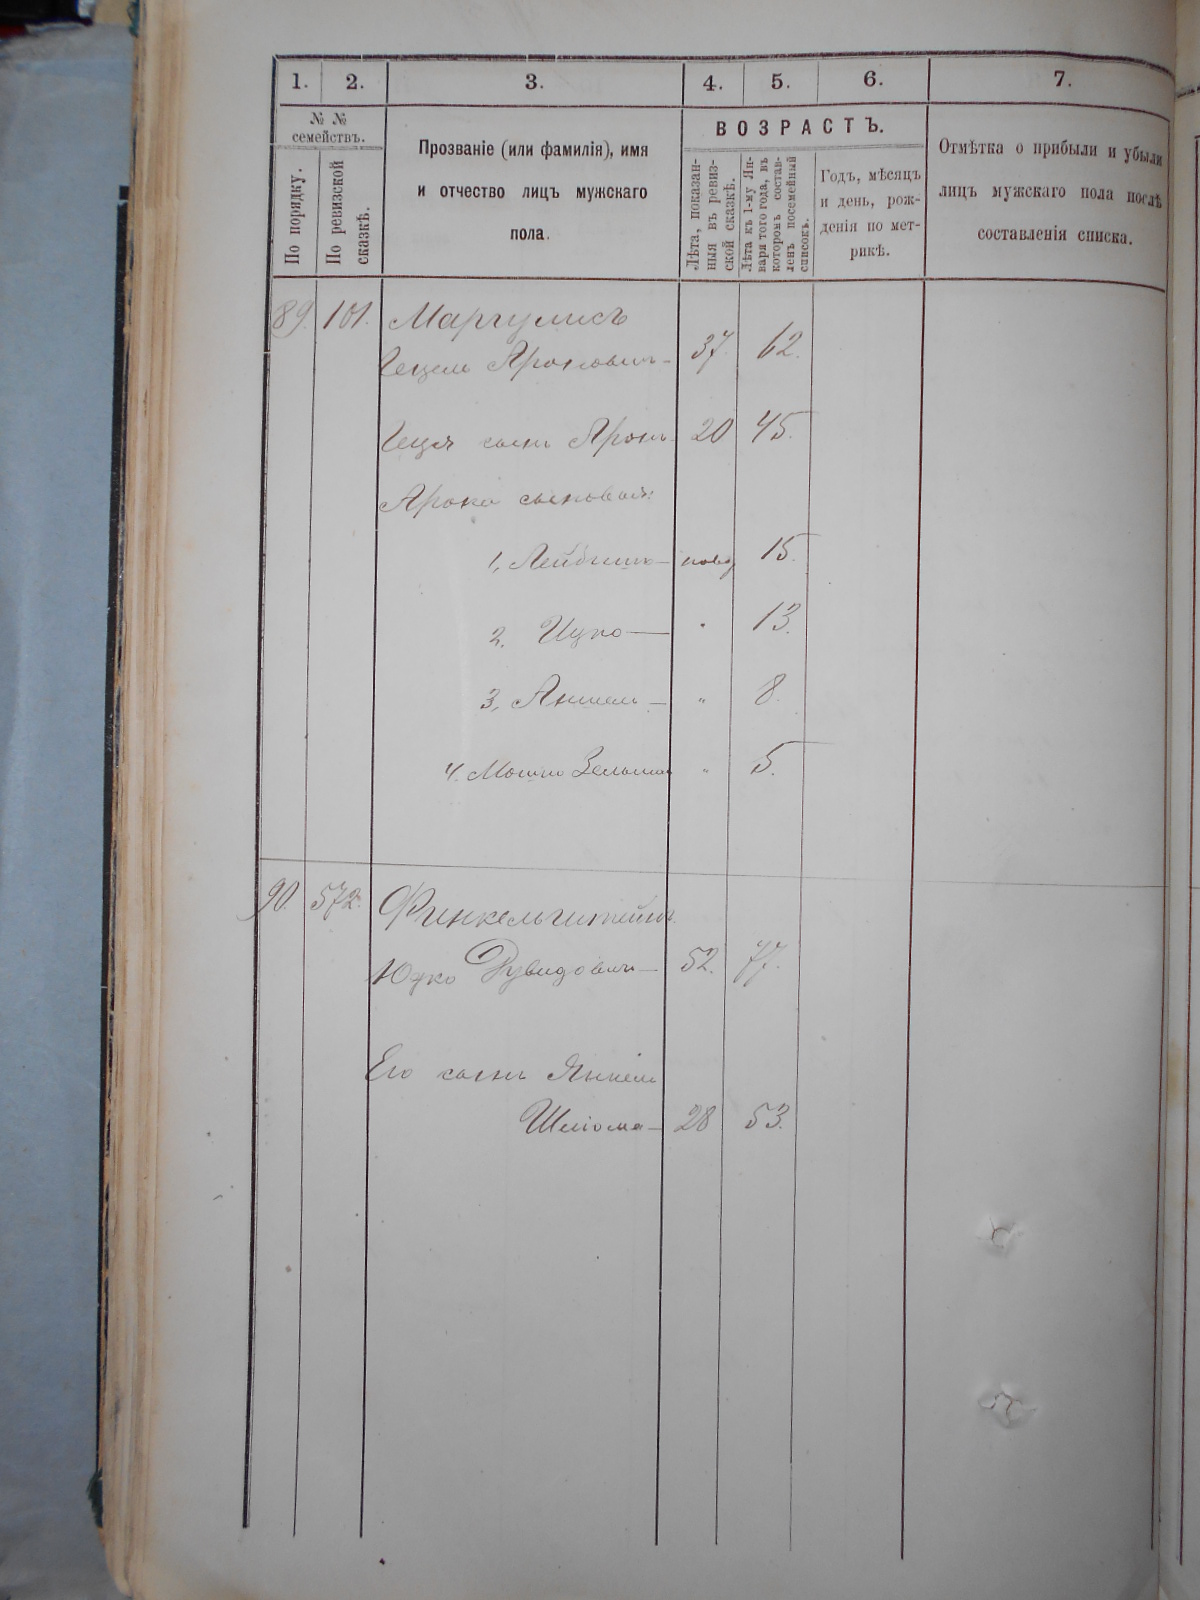 1. 2. 3. 4. 5. 6. 7.
№ №
семействъ.
По порядку.
По ревизской
сказкѣ.
Прозваніе (или фамилія), имя
и отчество лицъ мужскаго
пола.
ВОЗРАСТЪ.
Лѣта, показан-
ныя въ ревиз-
ской сказкѣ.
Лѣта къ 1-му Ян-
варя того года, въ
которомъ состав-
ленъ посемейный
списокъ.
Годъ, мѣсяцъ
и день, рож-
денія по мет-
рикѣ.
Отмѣтка о прибыли и убыли
лицъ мужскаго пола послѣ
составленія списка.
89. 101. Маргулисъ
Гецель Ароновичъ — 37. 62.
сынъ Аронъ 20 45.
Арона сыновья:
1, Лейбишъ — новор 15.
2. Ицко — " 13.
3, Аншель — " 8.
4. Мошко Зельман " 5.
90. 572. Финкельштейнъ
Юдко Дувидовичъ — 52. 77.
Его сынъ Янкель
Шлiома — 28 53.